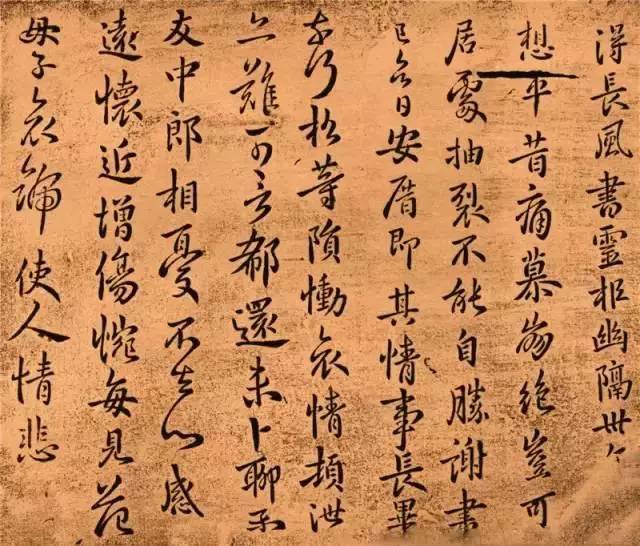 得長風書靈柩幽隔卅年
想平昔痛慕崩絕豈可
居處抽裂不能自勝謝書
已云日安厝即其情事長畢
奈何松等隕慟哀情頓泄
亦難可言郗還未卜聊示
友中郎相憂不去心感
遠懷近增傷惋每見范
母子哀號使人情悲